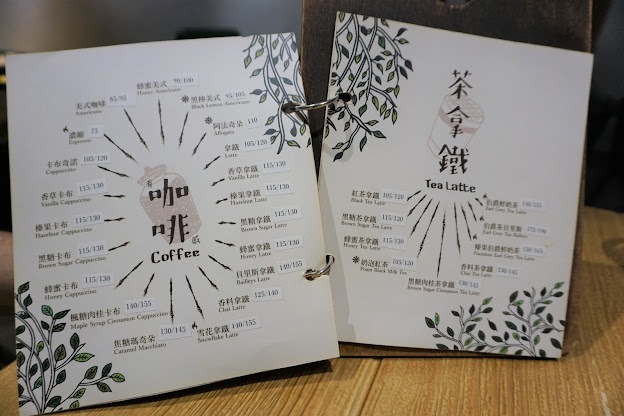 有
咖
啡
感
Coffee
蜂蜜美式 90/100
Honey Americano
黑檸美式 95/105
Black Lemon Americano
阿法奇朵 110
Affogato
拿鐵 105/120
Latte
香草拿鐵 115/130
Vanilla Latte
榛果拿鐵 115/130
Hazelnut Latte
黑糖拿鐵 115/130
Brown Sugar Latte
蜂蜜拿鐵 115/130
Honey Latte
貝里斯拿鐵 140/155
Baileys Latte
香料拿鐵 125/140
Chai Latte
雪花拿鐵 140/155
Snowflake Latte
焦糖瑪奇朵 130/145
Caramel Macchiato
楓糖肉桂卡布 140/155
Maple Syrup Cinnamon Cappuccino
蜂蜜卡布 115/130
Honey Cappuccino
黑糖卡布 115/130
Brown Sugar Cappuccino
榛果卡布 115/130
Hazelnut Cappuccino
香草卡布 115/130
Vanilla Cappuccino
卡布奇諾 105/120
Cappuccino
濃縮 75
Espresso
美式咖啡 85/95
Americano
茶
拿
鐵
Tea Latte
紅茶拿鐵 105/120
Black Tea Latte
黑糖茶拿鐵 115/130
Brown Sugar Tea Latte
蜂蜜茶拿鐵 115/130
Honey Tea Latte
奶泡紅茶 105/120
Foam Black Milk Tea
黑糖肉桂茶拿鐵 130/145
Brown Sugar Cinnamon Tea Latte
香料茶拿鐵 130/145
Chai Tea Latte
榛果伯爵鮮奶茶
Hazelnut Earl Grey Tea Latte
伯爵茶貝里斯
伯爵鮮奶茶
Earl Grey Tea Latte